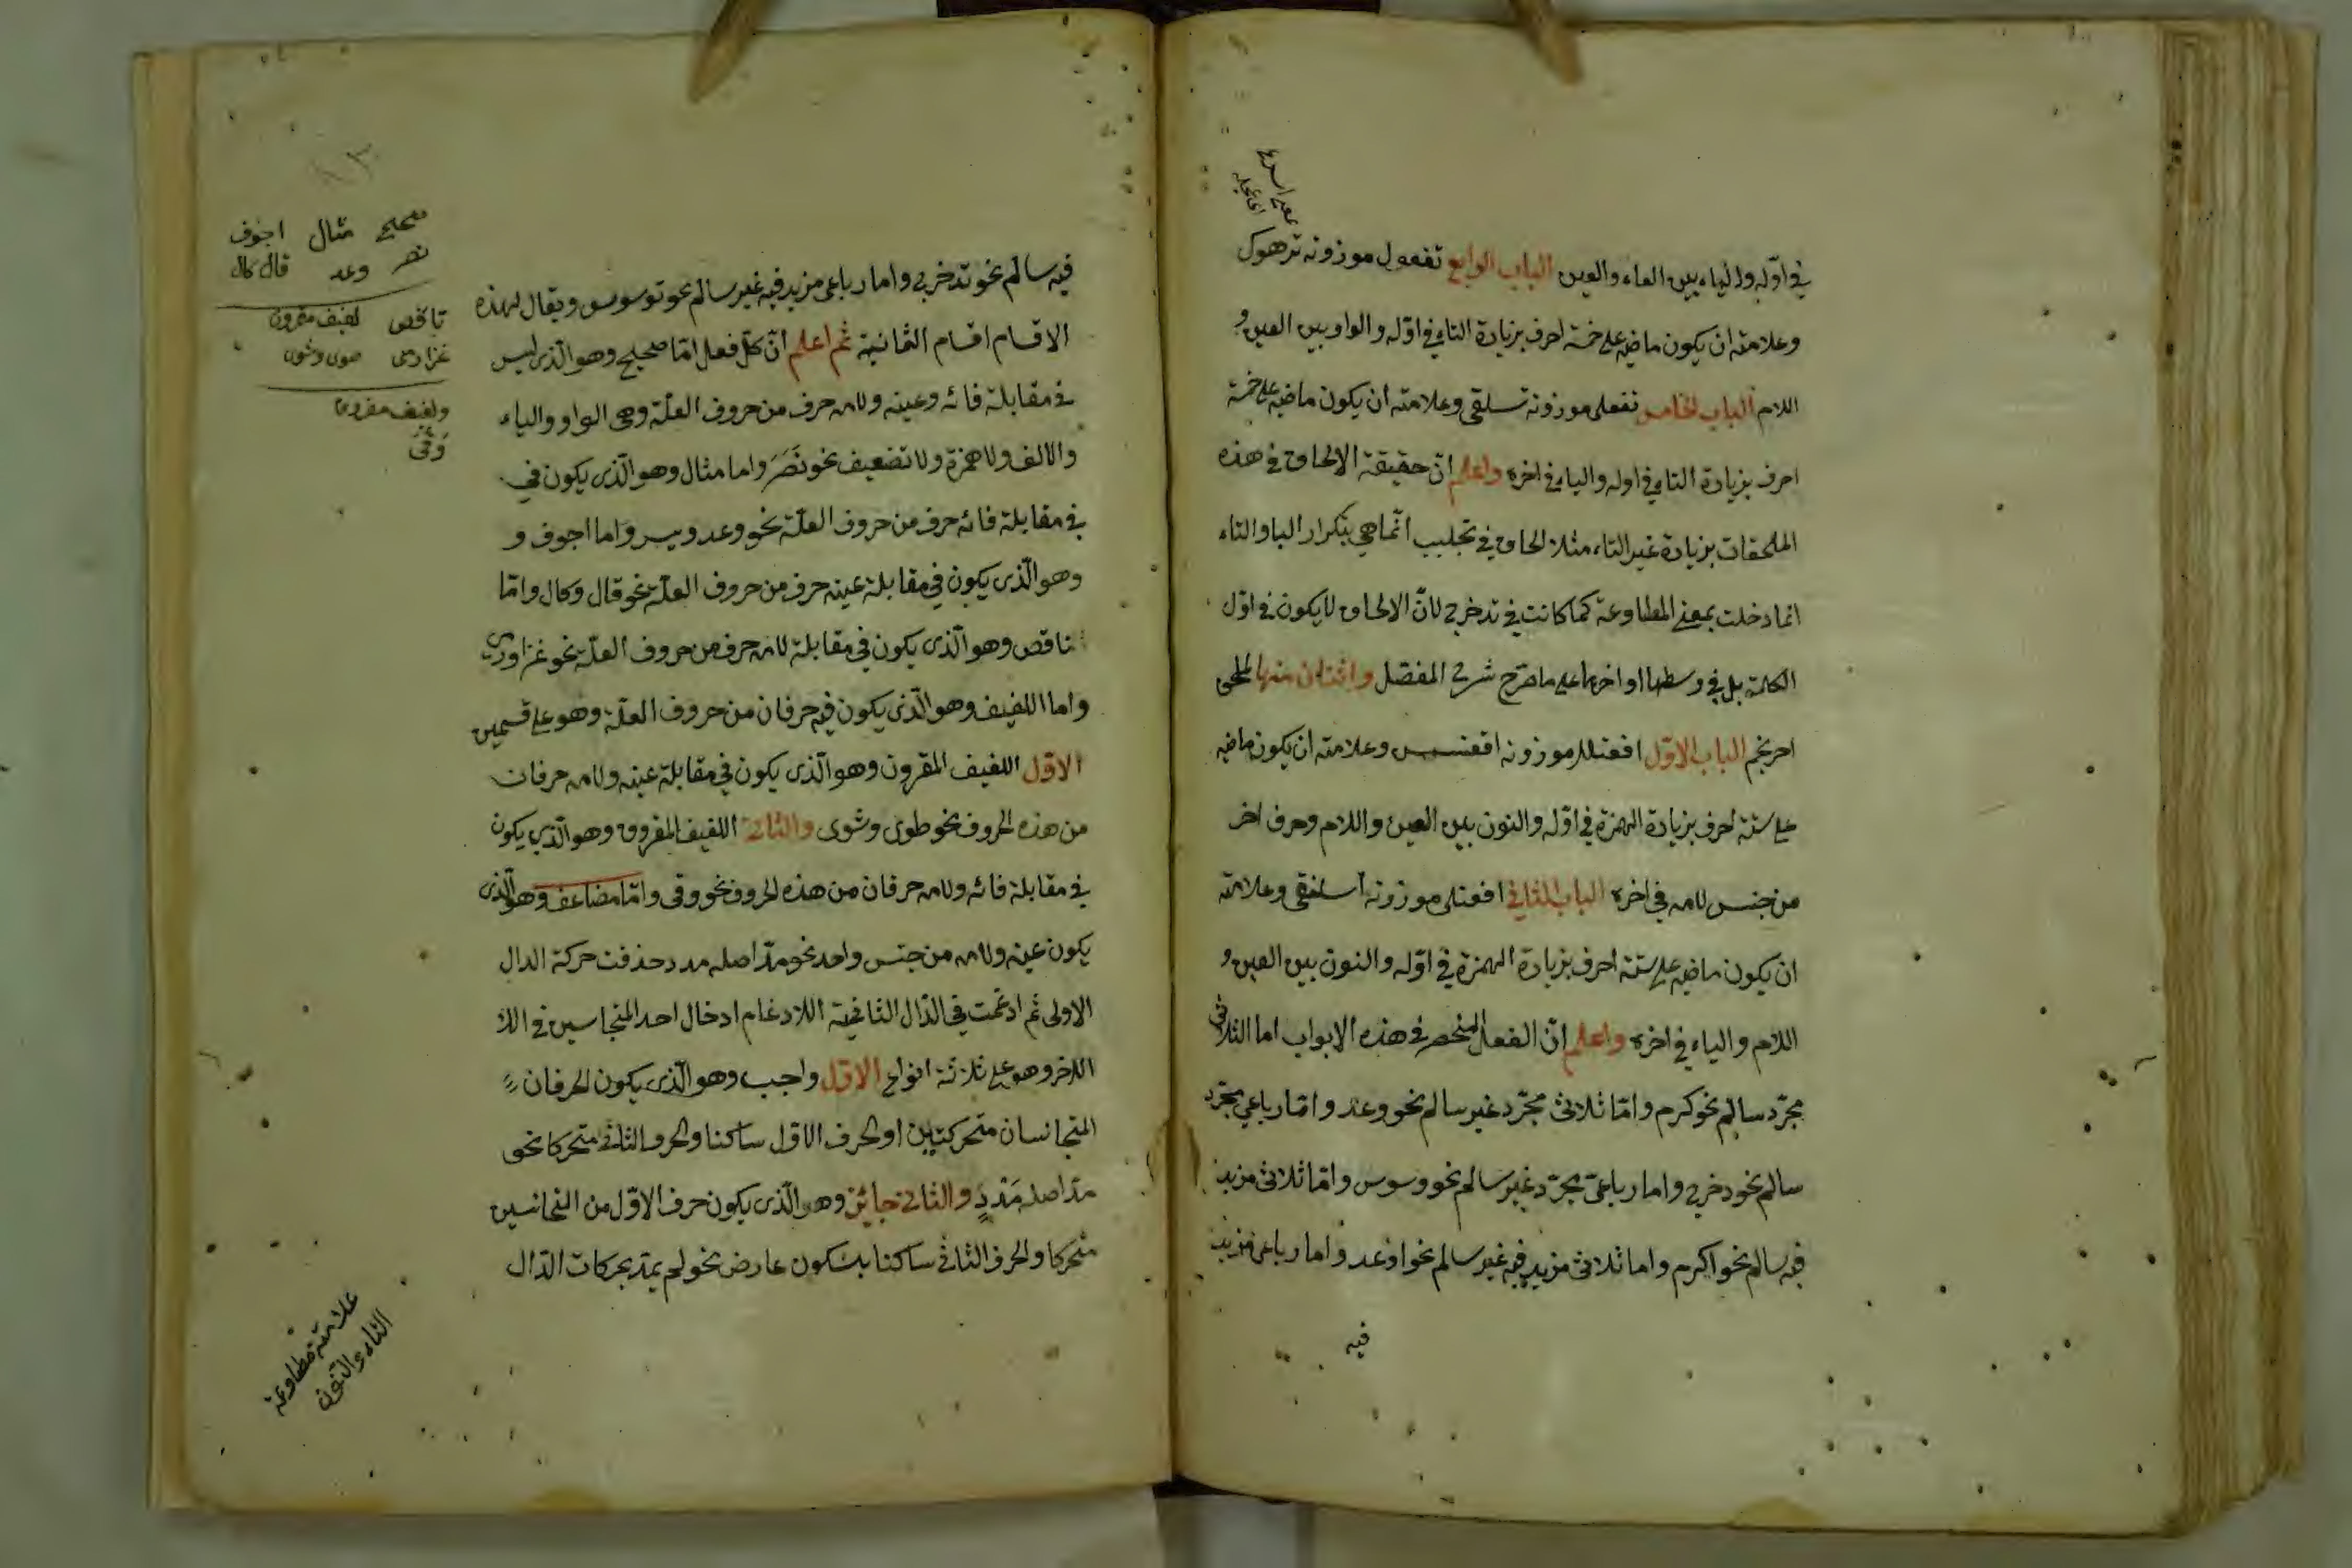 في اوّله والياء بين الفاء والعين الباب الرابع تفعول موزونه ترهوك
وعلامته ان يكون ماضيه على خمسة احرف بزيادة التاء في اوّله والواو بين العين و
اللام الباب الخامس تفعلى موزونه تسلقى وعلامته ان يكون ماضيه على خمسة
احرف بزيادة التاء في اوله والياء في اخره واعلم انّ حقيقة الالحاق في هذه
الملحقات بزيادة غير التاء مثلا الحاق في تجلبب انّما هي بتكرار الباء والتاء
انما دخلت بمعنى المطاوعة كما كانت في تدخرج لانّ الالحاق لا يكون في اوّل
الكلمة بل في وسطها او اخرها على ما صرّح شرح المفصّل واثنان منها لملحق
احرنجم الباب الاوّل افعنلل موزونه اقعنسس وعلامته ان يكون ماضيه
على ستة احرف بزيادة الهمزة في اوّله والنون بين العين واللام وحرف اخر
من جنس لامه في اخره الباب الثاني افعنلى موزونه اسلنقى وعلامته
ان يكون ماضيه على ستة احرف بزيادة الهمزة في اوّله والنون بين العين و
اللام والياء في اخره واعلم انّ الفعل المنحصر في هذه الابواب اما الثلاثي
مجرّد سالم نحو كرم وامّا ثلاثي مجرّد غير سالم نحو وعد وامّا رباعي مجرّد
سالم نحو دخرج واما رباعيّ مجرّد غير سالم نحو وسوس وامّا ثلاثي مزيد
فيه سالم نحو اكرم واما ثلاثي مزيد فيه غير سالم نحو اوعد واما رباعي مزيد
فيه
فيه سالم نحو تدخرج واما رباعي مزيد فيه غير سالم نحو توسوس ويقال لهذه
الاقسام اقسام الثمانية ثم اعلم انّ كلّ فعل امّا صحيح وهو الّذى ليس
في مقابلة فائه وعينه ولامه حرف من حروف العلّة وهى الواو والياء
والالف ولا همزة ولا تضعيف نحو نَصَرَ واما مثال وهو الّذى يكون في
في مقابلة فائه حرف من حروف العلّة نحو وعد ويسر واما اجوف و
وهو الّذى يكون في مقابلة عينه حرف من حروف العلّة نحو قال وكال وامّا
ناقص وهو الّذى يكون في مقابلة لامه حرف من حروف العلّة نحو غزا ورمى
واما اللفيف وهو الّذى يكون فيه حرفان من حروف العلّة وهو على قسمين
الاوّل اللفيف المقرون وهو الّذى يكون في مقابلة عينه ولامه حرفان
من هذه الحروف نحو طوى وشوى والثانى اللفيف المفروق وهو الّذى يكون
في مقابلة فائه ولامه حرفان من هذه الحروف نحو وقى وامّا مضاعف وهو الّذى
يكون عينه ولامه من جنس واحد نحو مدّ اصله مدد حذفت حركة الدال
الاولى ثم ادغمت في الدّال الثانية اللادغام ادخال احد المتجانسين في اللا
اللاخر وهو على ثلاثة انواع الاوّل واجب وهو الّذى يكون الحرفان
المتجانسان متحركتين او الحرف الاوّل ساكنا والحرف الثانى متحركا نحو
مدّ اصله مَدْدٍ والثانى جائز وهو الّذى يكون حرف الاوّل من المتجانسين
متحركا والحرف الثانى ساكنا بسكون عارض نحو لم يمدّ بحركات الدّال
صحيح مثال اجوف
نصر وعد قال كال
ناقص لفيف مقرون
غزا رمى
ولفيف مفروق
وَقَى
علامة مطاوعة
التاء والنون